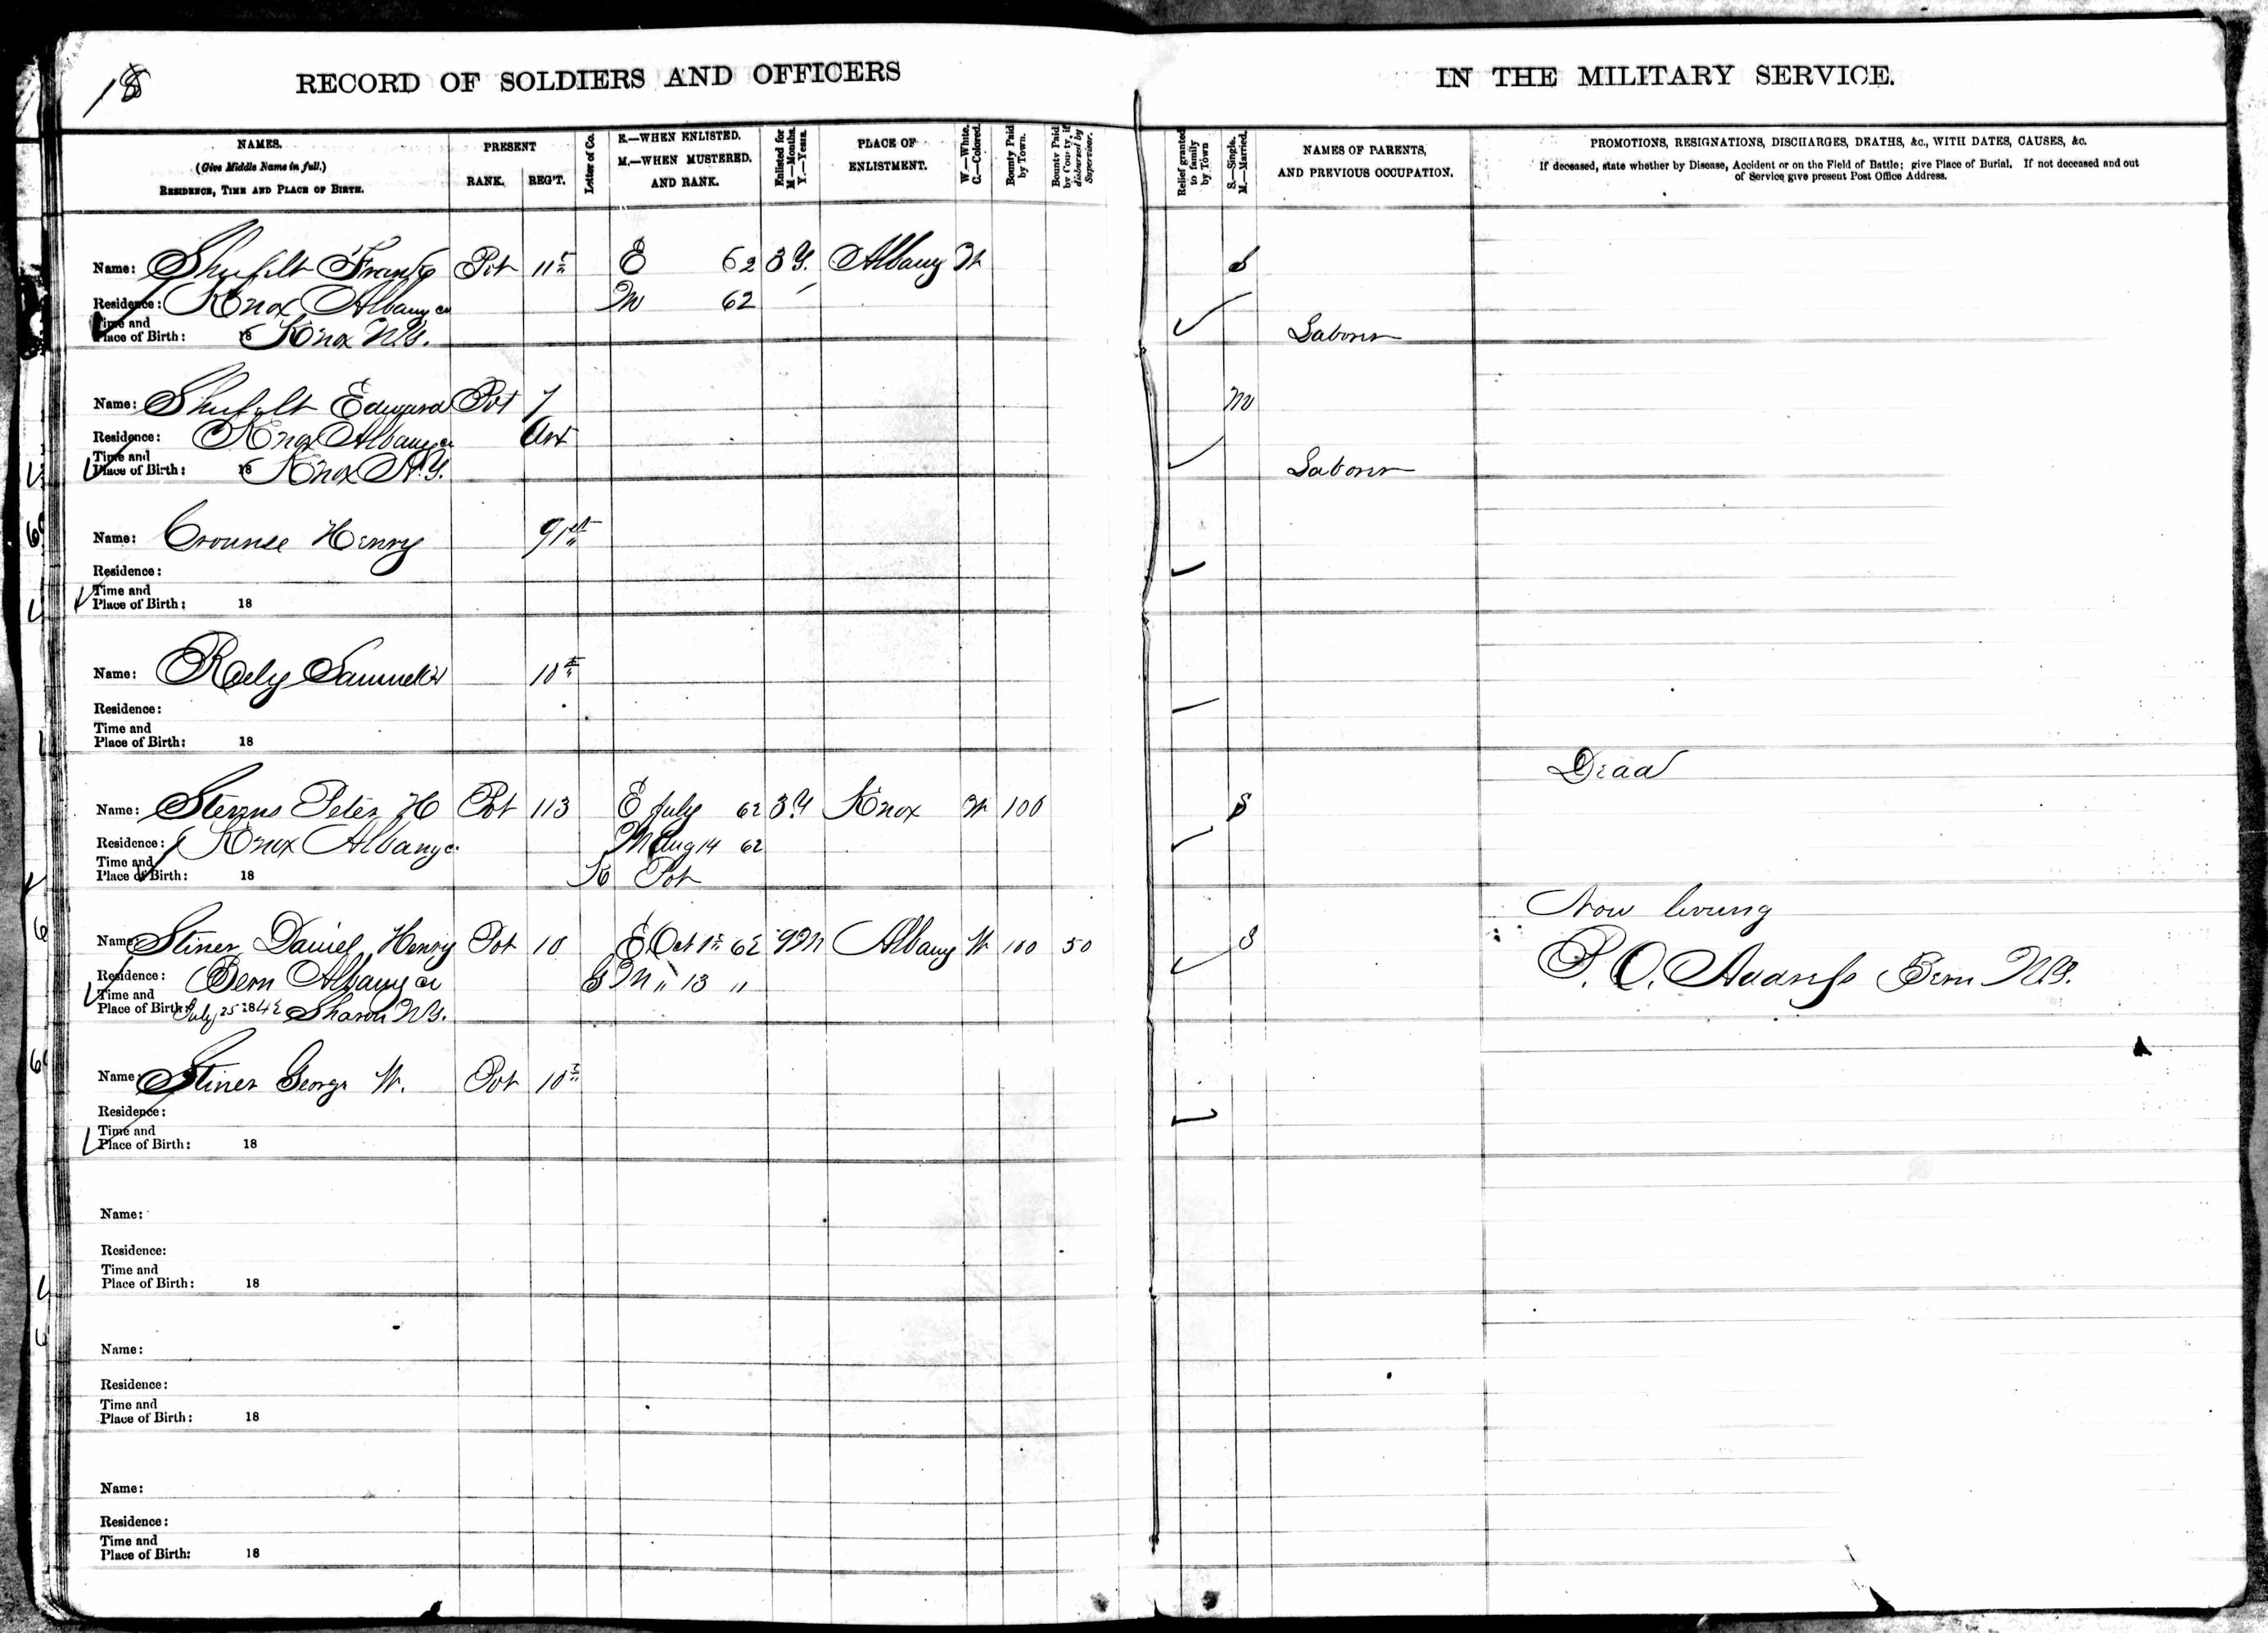 18
RECORD OF SOLDIERS AND OFFICERS
IN THE MILITARY SERVICE.
NAMES.
(Give Middle Name in full.)
RESIDENCE, TIME AND PLACE OF BIRTH.
PRESENT
RANK. REG'T.
Letter of Co.
E.—WHEN ENLISTED.
M.—WHEN MUSTERED.
AND RANK.
Enlisted for
M—Months.
Y.—Years.
PLACE OF
ENLISTMENT.
W.—White.
C.—Colored.
Bounty Paid
by Town.
Bounty Paid
by County, if
disbursed by
Supervisor.
Relief granted
to family
by Town
S.—Single.
M.—Married.
NAMES OF PARENTS,
AND PREVIOUS OCCUPATION.
PROMOTIONS, RESIGNATIONS, DISCHARGES, DEATHS, &c., WITH DATES, CAUSES, &c.
If deceased, state whether by Disease, Accident or on the Field of Battle; give Place of Burial. If not deceased and out
of Service give present Post Office Address.
Name: Shufelt Frank Pvt 11th E 62 3 Y. Albany W S
Residence: Knox Albany co M 62
Time and
Place of Birth: 18 Knox N.Y. Laborer
Name: Shufelt Edward Pvt 7 M
Residence: Knox Albany co Art
Time and
Place of Birth: 18 Knox N.Y. Laborer
Name: Crounse Henry 91st
Residence:
Time and
Place of Birth: 18
Name: Rely Samuel 10th
Residence:
Time and
Place of Birth: 18
Dead
Name: Stevens Peter H Pvt 113 E July 62 3 Y Knox W 100 S
Residence: Knox Albany c. M Aug 14 62
Time and
Place of Birth: 18 K Pvt
Now living
Name: Stiner Daniel Henry Pvt 10 E Oct 1st 62 9 M Albany W 100 50 S P. O. Address Bern N.Y.
Residence: Bern Albany co G M " 13 "
Time and
Place of Birth: July 25 1842 Sharon N.Y.
Name: Stiner George W. Pvt 10th
Residence:
Time and
Place of Birth: 18
Name:
Residence:
Time and
Place of Birth: 18
Name:
Residence:
Time and
Place of Birth: 18
Name:
Residence:
Time and
Place of Birth: 18